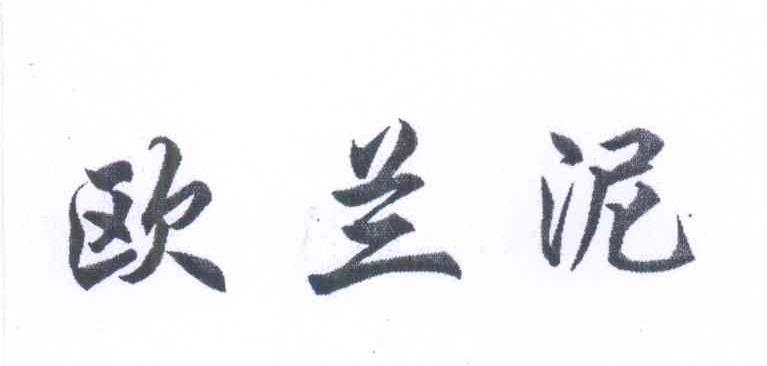 欧兰泥